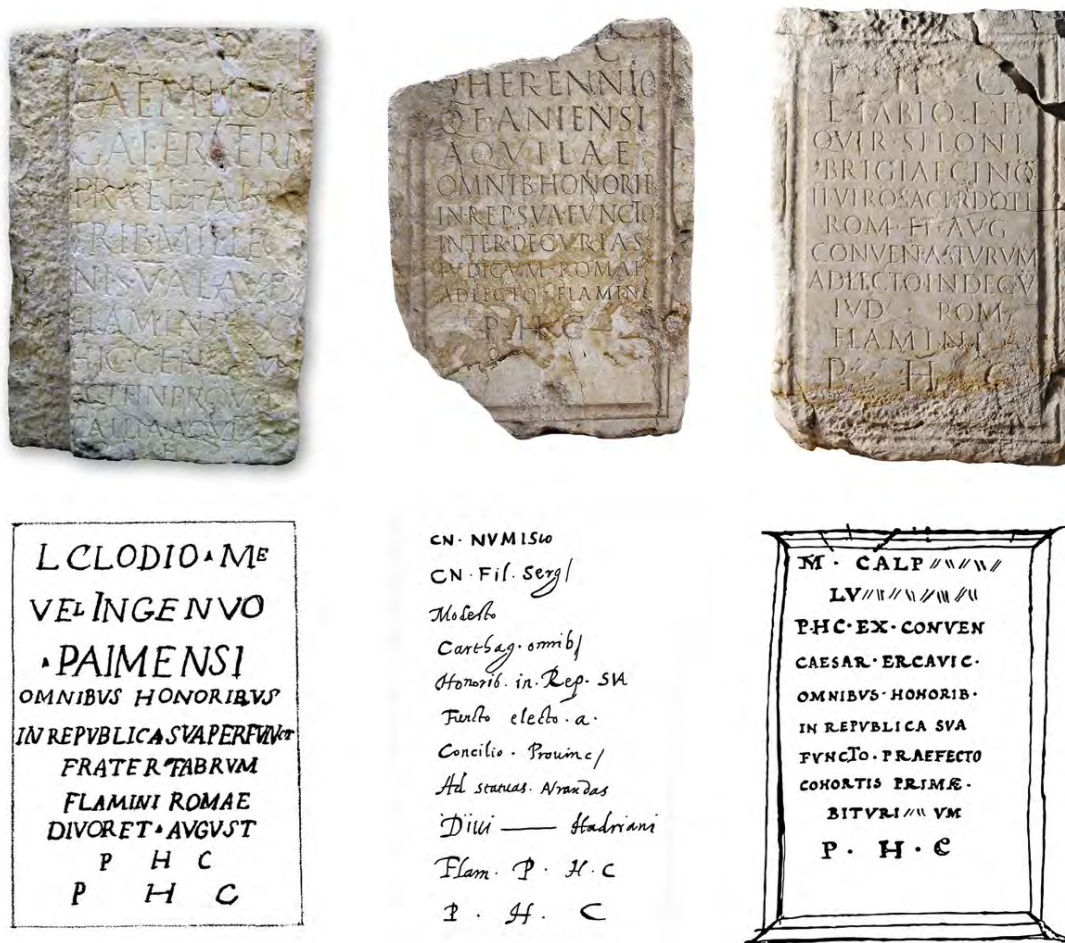 C·AEMILIO·C
GALER·
PRAEF·FABR
TRIB·MIL·LEG
C
HERENNIO
Q·F·ANIENSI
AQVILAE
OMNIB·HONORIB
IN·REP·SVA·FVNCTO
INTER·DECVRIAS
IVDICVM·ROMAE
ADLECTO·FLAMINI
P·H·C
P H C
L·FABIO·L·F
QVIR·SILONI
BRIGIAECINO
IIVIRO·SACERDOTI
ROM·ET·AVG
CONVEN·ASTVRVM
ADLECTO·IN·DECV
IVD·ROM
FLAMINI
P H C
L CLODIO·ME
VEL INGENVO
·PAIMENSI
OMNIBVS HONORIBVS
IN REPVBLICA SVA PERFVNCT
FRATER FABRVM
FLAMINI ROMAE
DIVORET·AVGVST
P H C
P H C
CN·NVMISIO
CN·Fil·Serg/
Modesto
Carthag·omnib/
Honorib·in·Rep·SVA
Functo electo·a·
Concilio·Prouinc/
Ad statuas·Aurandas
Diui — Hadriani
Flam·P·H·C
P·H·C
M·CALP
LV
P·H·C·EX·CONVEN
CAESAR·ERCAVIC·
OMNIBVS·HONORIB·
IN REPVBLICA SVA
FVNCTO·PRAEFECTO
COHORTIS PRIMÆ·
BITVRI VM
P·H·C